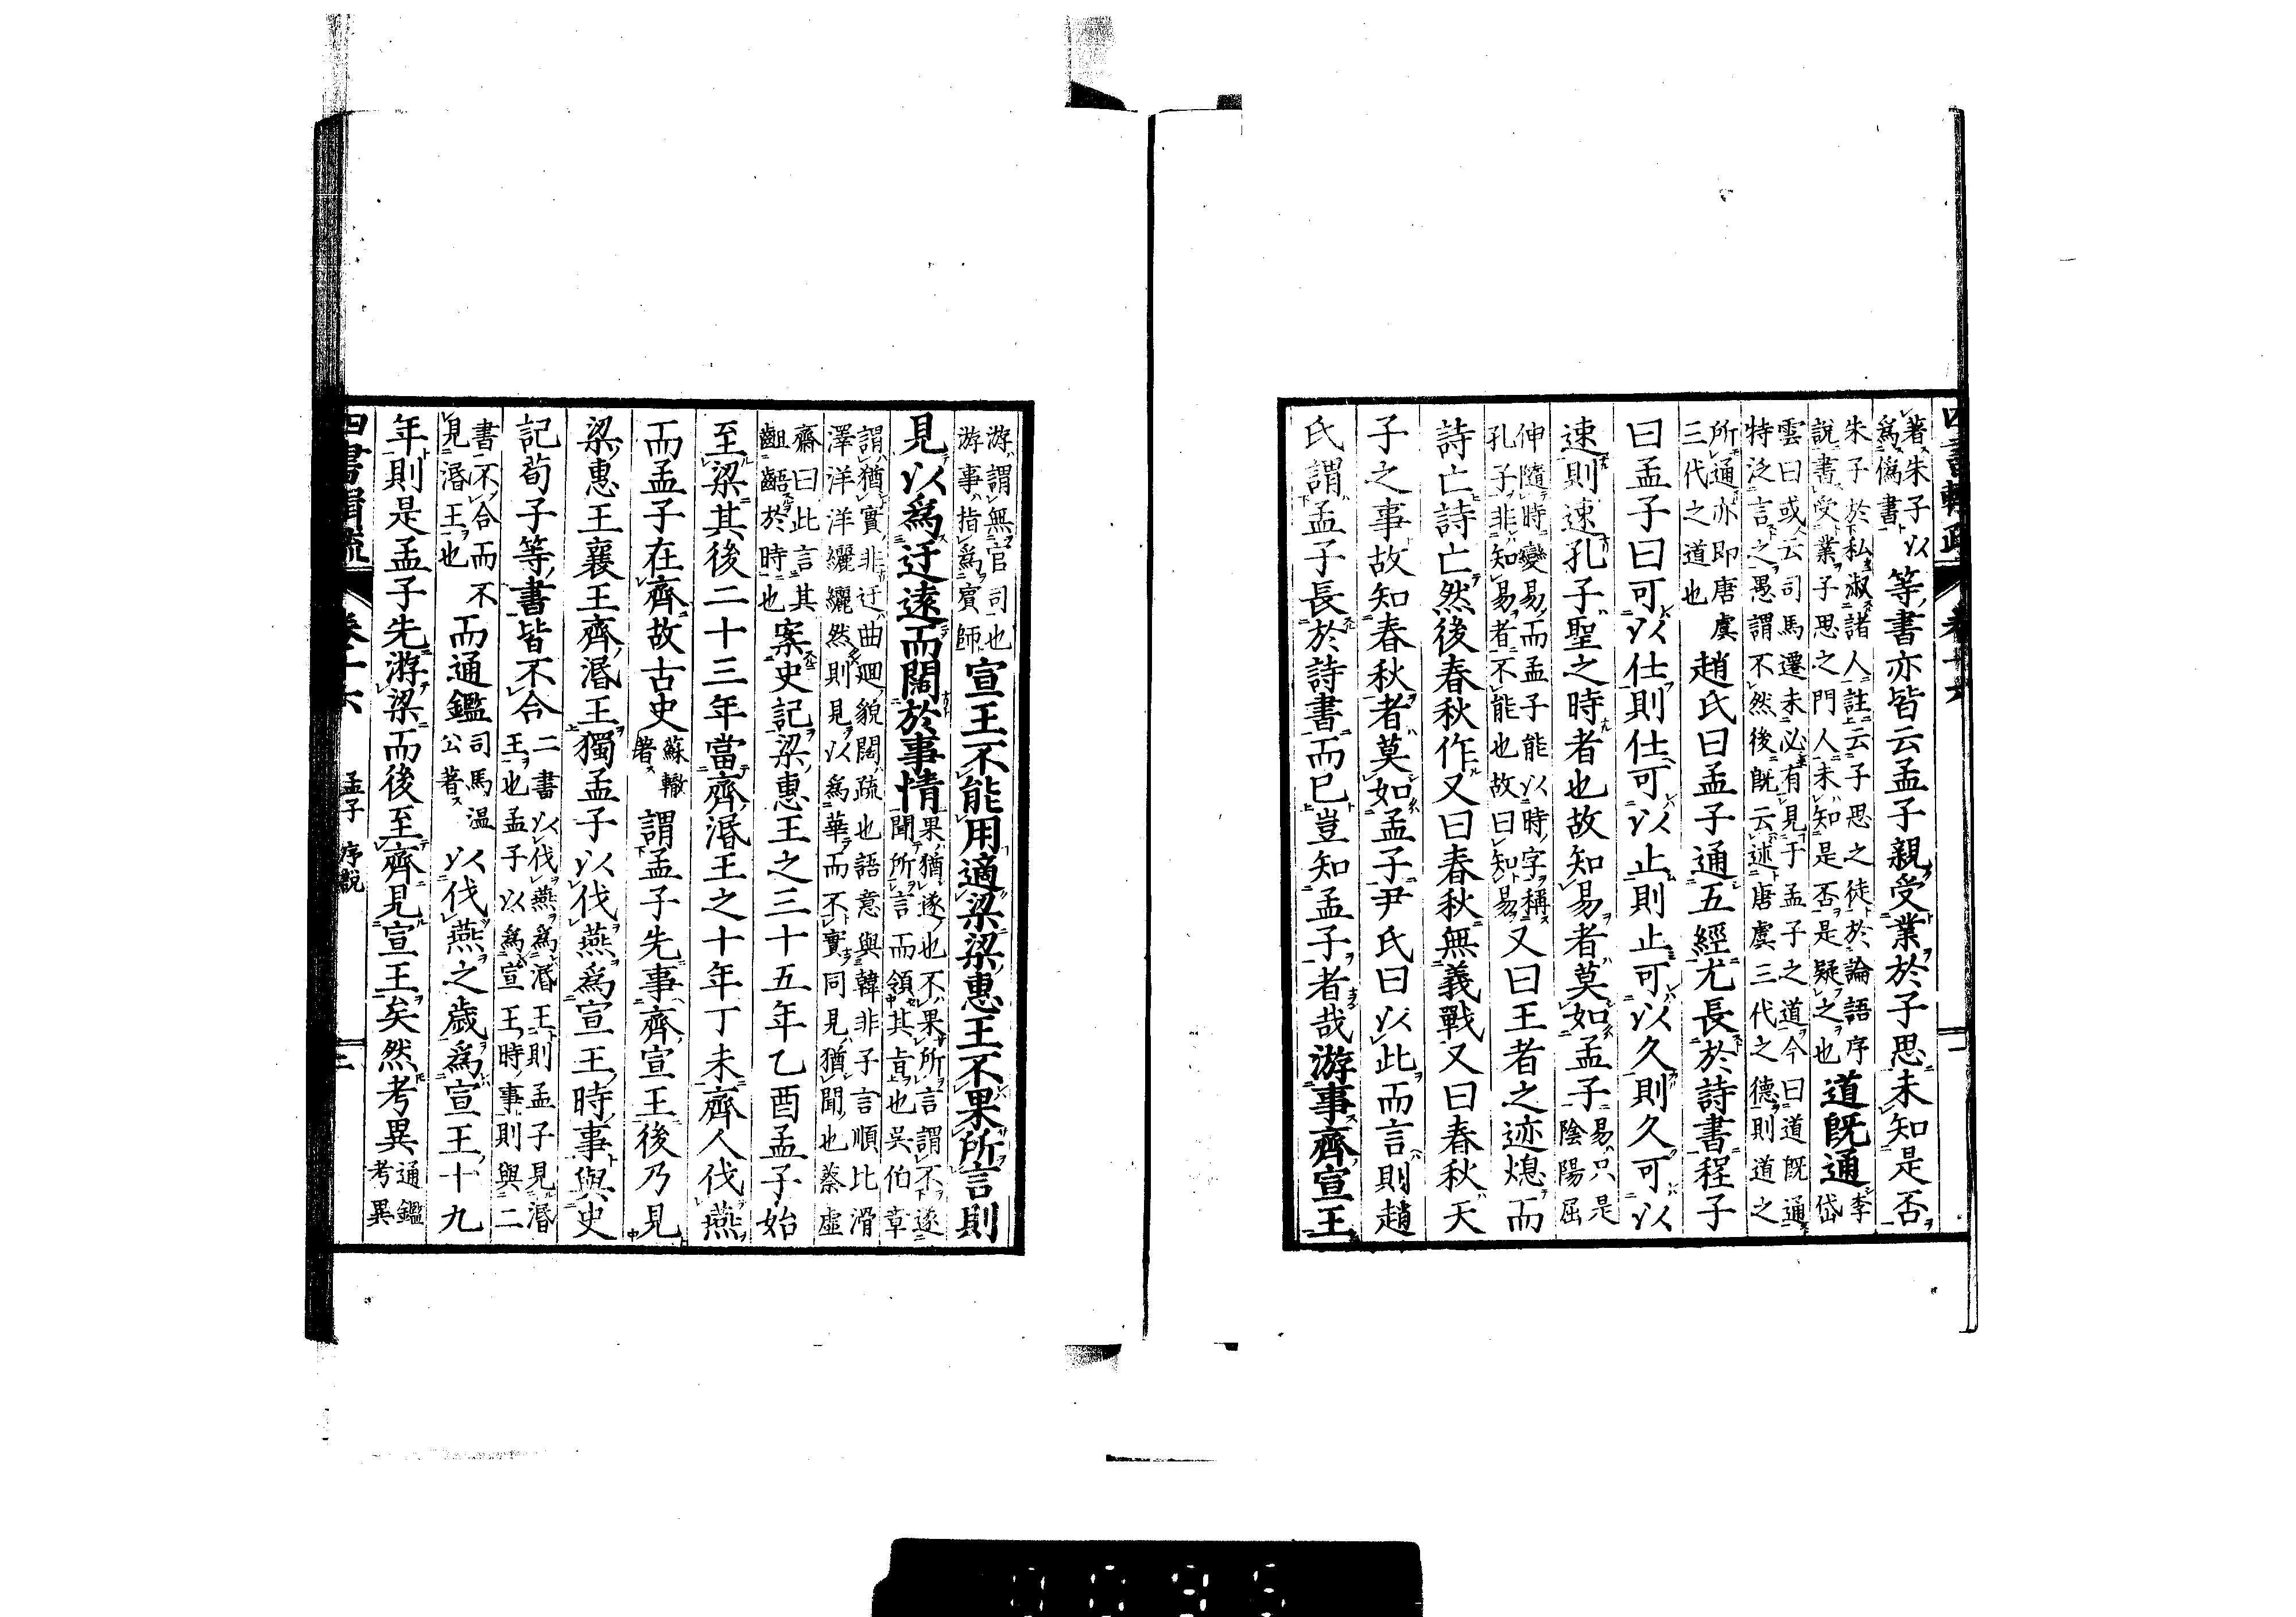 著朱子以
爲僞書
等書亦皆云孟子親受業於子思未知是否
朱子於私淑諸人註云子思之徒於論語序
說書受業子思之門人未知是否是疑之也
道既通
李岱
雲曰或云司馬遷未必有見于孟子之道今曰道既通
特泛言之愚謂不然後既云述唐虞三代之德則道之
所通亦即唐虞
三代之道也
趙氏曰孟子通五經尤長於詩書程子
曰孟子曰可以仕則仕可以止則止可以久則久可以
速則速孔子聖之時者也故知易者莫如孟子
易只是
陰陽屈
伸隨時變易而孟子能以時字稱
孔子非知易者不能也故曰知易
又曰王者之迹熄而
詩亡詩亡然後春秋作又曰春秋無義戰又曰春秋天
子之事故知春秋者莫如孟子尹氏曰以此而言則趙
氏謂孟子長於詩書而已豈知孟子者哉游事齊宣王
游謂無官司也
游事指爲賓師
宣王不能用適梁梁惠王不果所言則
見以爲迂遠而闊於事情
果猶遂也不果所言謂不遂
聞所言而領其旨也吳伯章
謂猶實非迂曲廻貌闊疏也語意與韓非子言順比滑
澤洋洋纚纚然則見以爲華而不實同見猶聞也蔡虛
齋曰此言其
齟齬於時也
案史記梁惠王之三十五年乙酉孟子始
至梁其後二十三年當齊湣王之十年丁未齊人伐燕
而孟子在齊故古史
蘇轍
著
謂孟子先事齊宣王後乃見
梁惠王襄王齊湣王獨孟子以伐燕爲宣王時事與史
記荀子等書皆不合
二書以伐燕爲湣王則孟子見湣
王也孟子以爲宣王時事則與二
書不合而不
見湣王也
而通鑑
司馬溫
公著
以伐燕之歲爲宣王十九
年則是孟子先游梁而後至齊見宣王矣然考異
通鑑
考異
四書
卷十六
孟子
序說